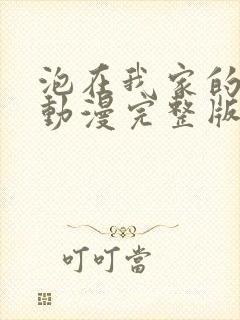 泡在我家的
動漫完整版
叮叮當